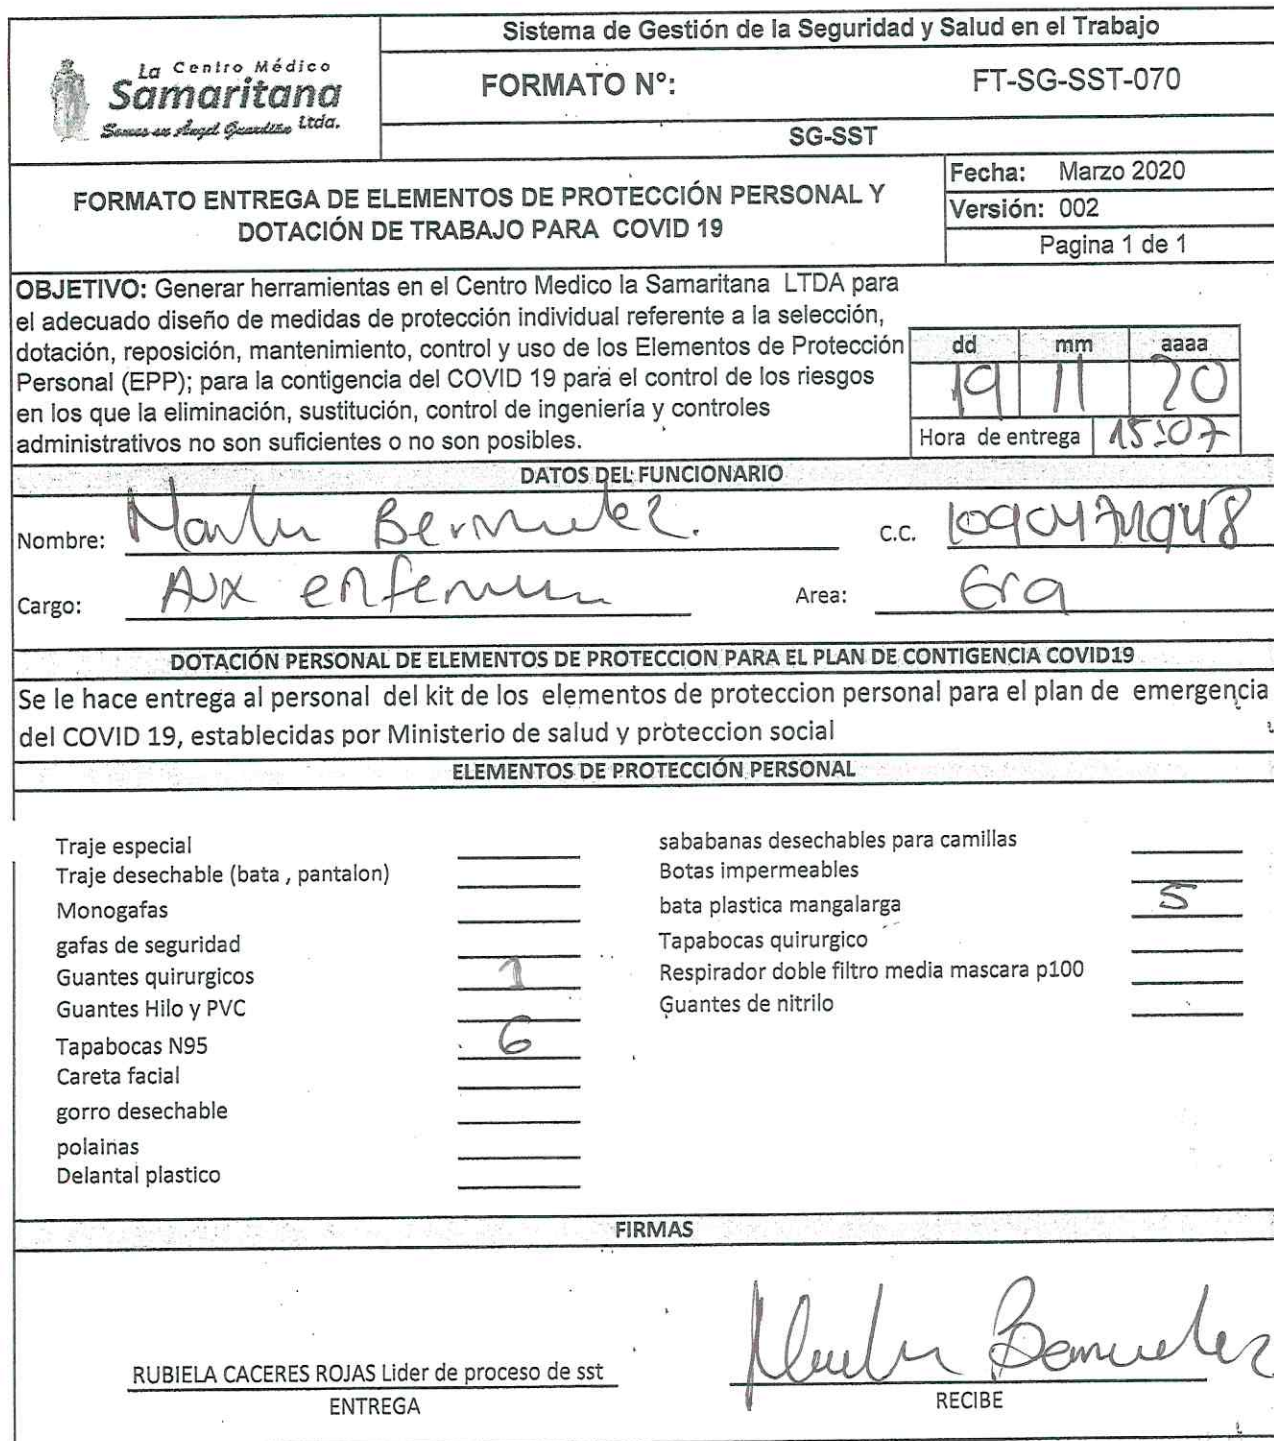 La Centro Médico
Samaritana
Somos su Ángel Guardián Ltda.
Sistema de Gestión de la Seguridad y Salud en el Trabajo
FORMATO N°: FT-SG-SST-070
SG-SST
FORMATO ENTREGA DE ELEMENTOS DE PROTECCIÓN PERSONAL Y
DOTACIÓN DE TRABAJO PARA COVID 19
Fecha: Marzo 2020
Versión: 002
Pagina 1 de 1
OBJETIVO: Generar herramientas en el Centro Medico la Samaritana LTDA para
el adecuado diseño de medidas de protección individual referente a la selección,
dotación, reposición, mantenimiento, control y uso de los Elementos de Protección
Personal (EPP); para la contigencia del COVID 19 para el control de los riesgos
en los que la eliminación, sustitución, control de ingeniería y controles
administrativos no son suficientes o no son posibles.
dd mm aaaa
19 11 20
Hora de entrega 15:07
DATOS DEL FUNCIONARIO
Nombre: Bermudez. C.C.
Cargo: Aux Area:
DOTACIÓN PERSONAL DE ELEMENTOS DE PROTECCION PARA EL PLAN DE CONTIGENCIA COVID19
Se le hace entrega al personal del kit de los elementos de proteccion personal para el plan de emergencia
del COVID 19, establecidas por Ministerio de salud y proteccion social
ELEMENTOS DE PROTECCIÓN PERSONAL
Traje especial
Traje desechable (bata , pantalon)
Monogafas
gafas de seguridad
Guantes quirurgicos 1
Guantes Hilo y PVC
Tapabocas N95 6
Careta facial
gorro desechable
polainas
Delantal plastico
sababanas desechables para camillas
Botas impermeables
bata plastica mangalarga 5
Tapabocas quirurgico
Respirador doble filtro media mascara p100
Guantes de nitrilo
FIRMAS
RUBIELA CACERES ROJAS Lider de proceso de sst
ENTREGA
Bermudez
RECIBE